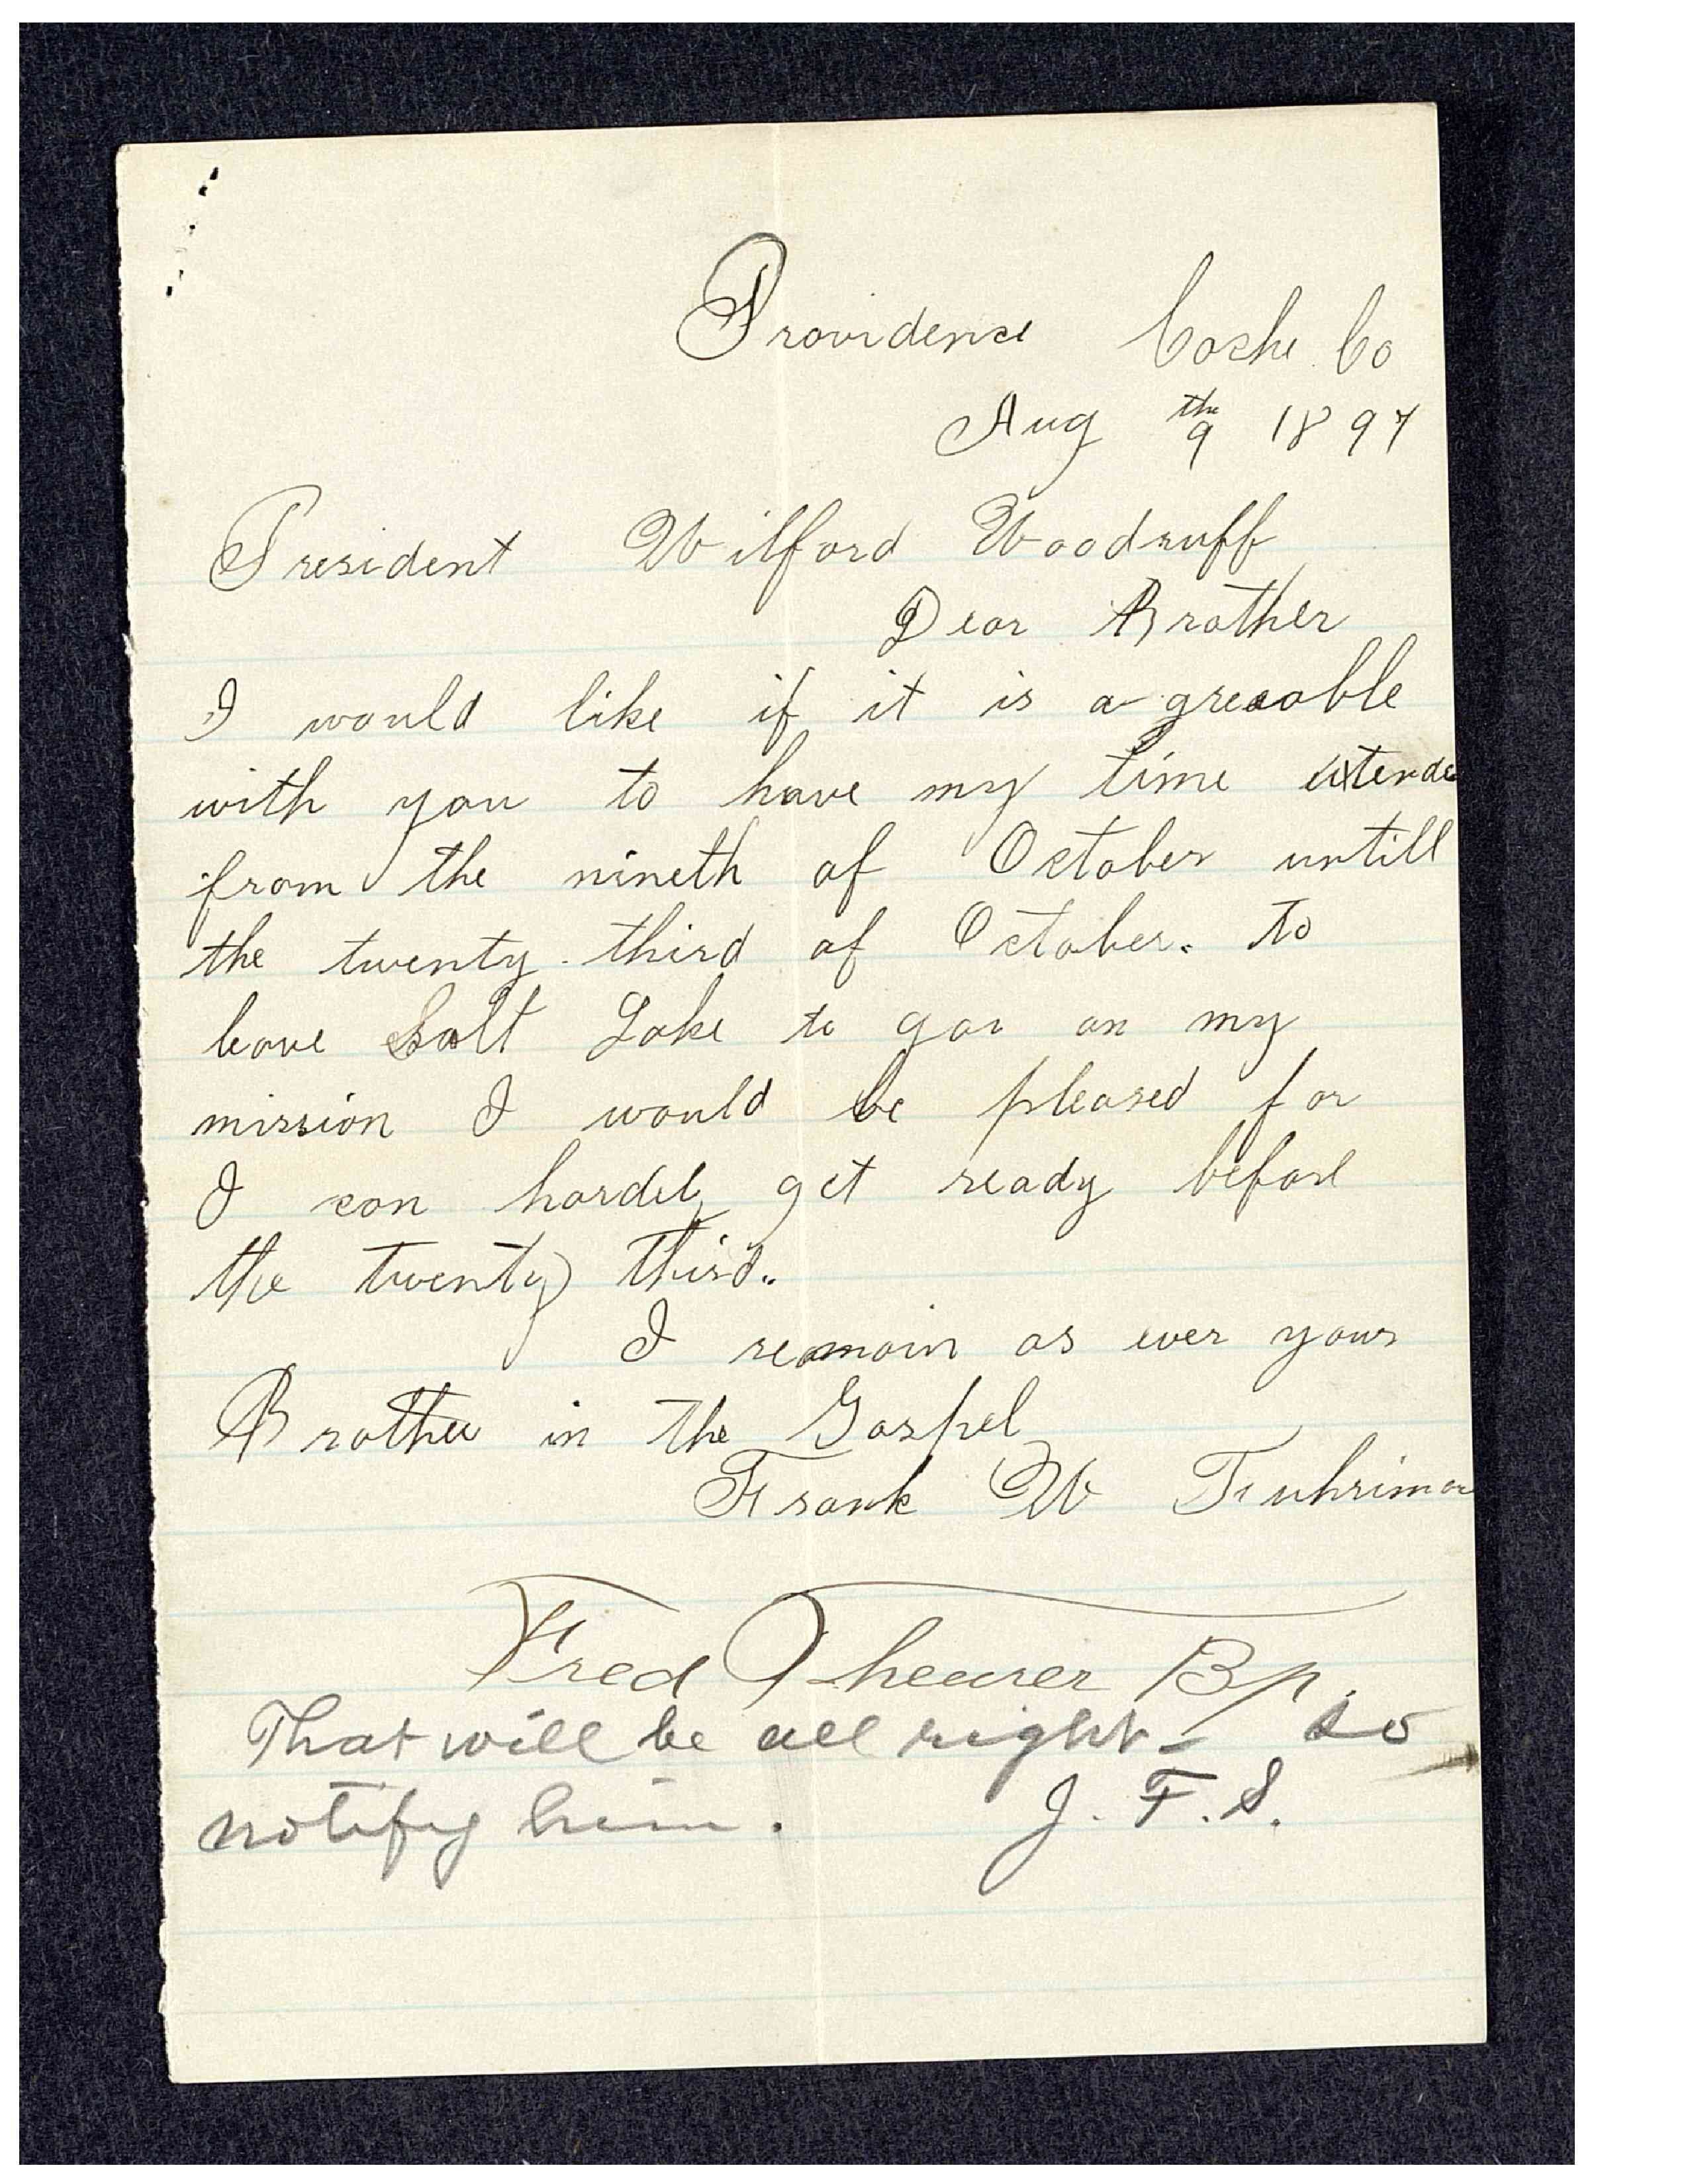 Providence Cache Co
Aug 9th 1897
President Wilford Woodruff
Dear Brother
I would like if it is a greaable
with you to have my time extende
from the nineth of October untill
the twenty-third of October. To
leave Salt Lake to goo on my
mission I would be pleased for
I can hardely get ready before
the twenty third.
I remain as ever your
Brother in the Gospel
Frank W Fuhriman
Fred Theurer Bp.
That will be all right - so
notify him. J. F. S.